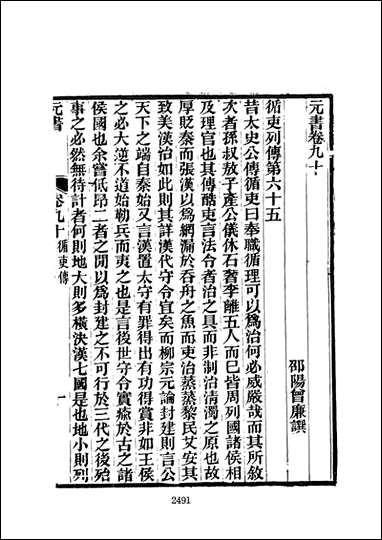 元書卷九十
邵陽曾廉譔
循吏列傳第六十五
昔太史公傳循吏曰奉職循理可以爲治何必威嚴哉而其所敘
次者孫叔敖子產公儀休石奢李離五人而已皆周列國諸侯相
及理官也其傳酷吏言法令者治之具而非制治清濁之原也故
厚貶秦而張漢以爲網漏於吞舟之魚而吏治蒸蒸黎民艾安其
致美漢治如此則其詳漢代守令宜矣而柳宗元論封建則言公
天下之端自秦始又言漢置太守有罪得出有功得賞非如王侯
之必大逆不道始勒兵而夷之也是言後世守令實瘉於古之諸
侯國也余嘗低昂二者之閒以爲封建之不可行於三代之後殆
事之必然無待計者何則地大則多橫決漢七國是也地小則列
元書
卷九十循吏傳
一
2491